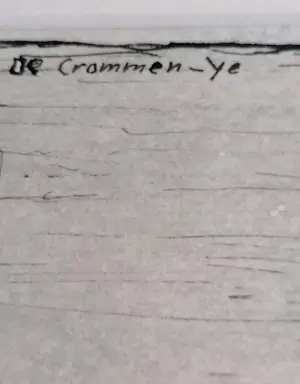 De Crommen-Ye